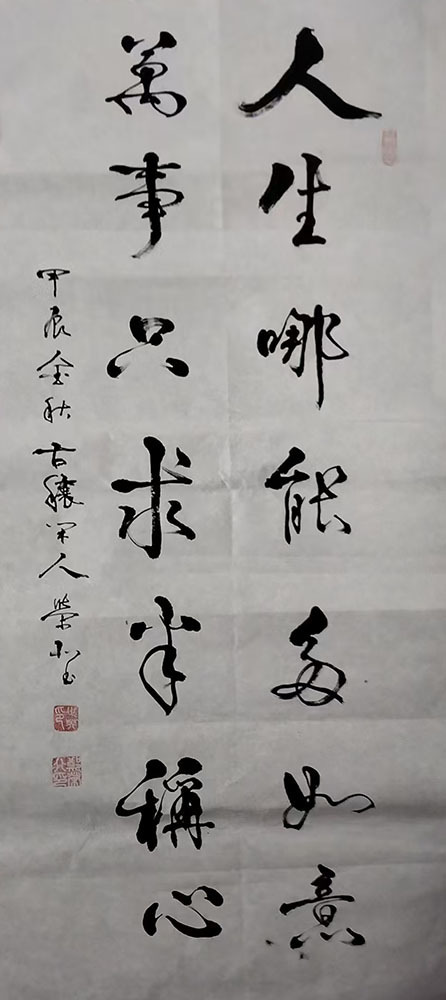 人生哪能多如意
萬事只求半稱心
甲辰金秋古穰闲人榮